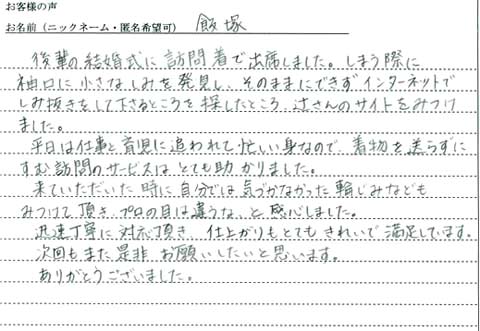 お客様の声
お名前（ニックネーム・匿名希望可） 飯塚
後輩の結婚式に訪問着で出席しました。しまう際に
袖口に小さなしみを発見し、そのままにできずインターネットで
しみ抜きをして下さるところを探したところ、辻さんのサイトをみつけ
ました。
平日は仕事と育児に追われて忙しい身なので、着物を送らずに
すむ訪問のサービスはとても助かりました。
来ていただいた時に自分では気づかなかった輪じみなども
みつけて頂き、プロの目は違うな、と感心しました。
迅速丁寧に対応頂き、仕上がりもとてもきれいで満足しています。
次回もまた是非お願いしたいと思います。
ありがとうございました。